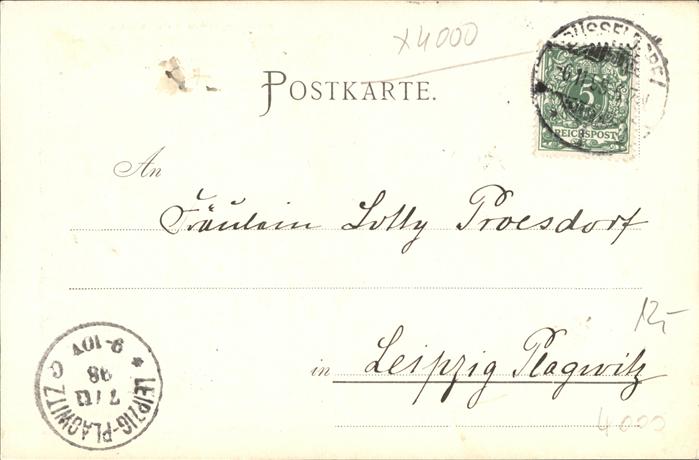 x4000
DÜSSELDORF
5
REICHSPOST
POSTKARTE.
An
Fräulein Lotty Proesdorf
12,-
in Leipzig Plagwitz
4000
LEIPZIG-PLAGWITZ
7/11
98
9-10V